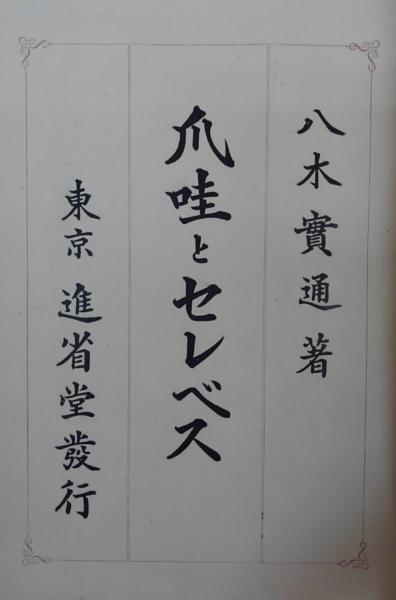 八木實通著
爪哇とセレベス
東京 進省堂發行